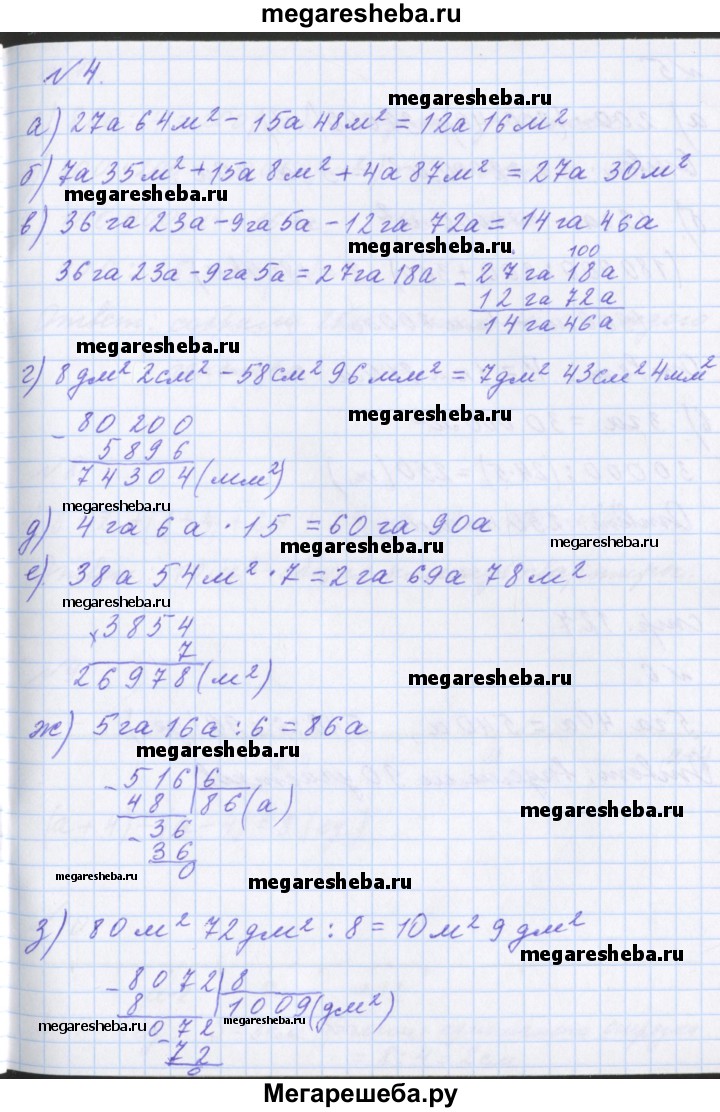 megaresheba.ru
№4.
megaresheba.ru
а) 27а 64м² - 15а 48м² = 12а 16м²
б) 7а 35м² + 15а 8м² + 4а 87м² = 27а 30м²
megaresheba.ru
в) 36 га 23а - 9га 5а - 12 га 72а = 14 га 46а
megaresheba.ru
100
36 га 23а - 9га 5а = 27га 18а - 27 га 18а
12 га 72а
14 га 46а
megaresheba.ru
г) 8 дм² 2см² - 58см² 96мм² = 7дм² 43см² 4мм²
megaresheba.ru
- 80 200
5896
74304 (мм²)
megaresheba.ru
д) 4 га 6а · 15 = 60 га 90а
megaresheba.ru
megaresheba.ru
е) 38а 54м² · 7 = 2 га 69а 78м²
megaresheba.ru
× 3854
7
26978 (м²)
megaresheba.ru
ж) 5 га 16а : 6 = 86а
megaresheba.ru
- 516 6
48 86 (а)
megaresheba.ru
- 36
36
0
megaresheba.ru
megaresheba.ru
з) 80м² 72дм² : 8 = 10м² 9дм²
megaresheba.ru
- 8072 8
8 1009 (дм²)
megaresheba.ru
megaresheba.ru
- 072
72
0
Мегарешеба.ру